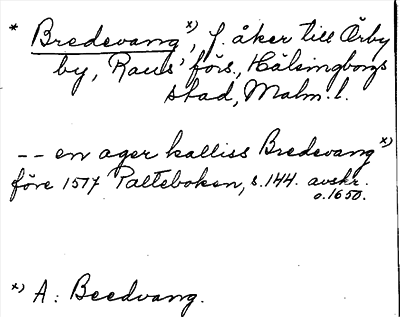 * Bredevang *), f. åker till Örby
by, Raus' förs., Hälsingborgs
stad, Malm. l.
-- en ager kalliss Bredevang *)
före 1517 Palteboken, s. 144. avskr.
o. 1650.
*) A: Beedvang.